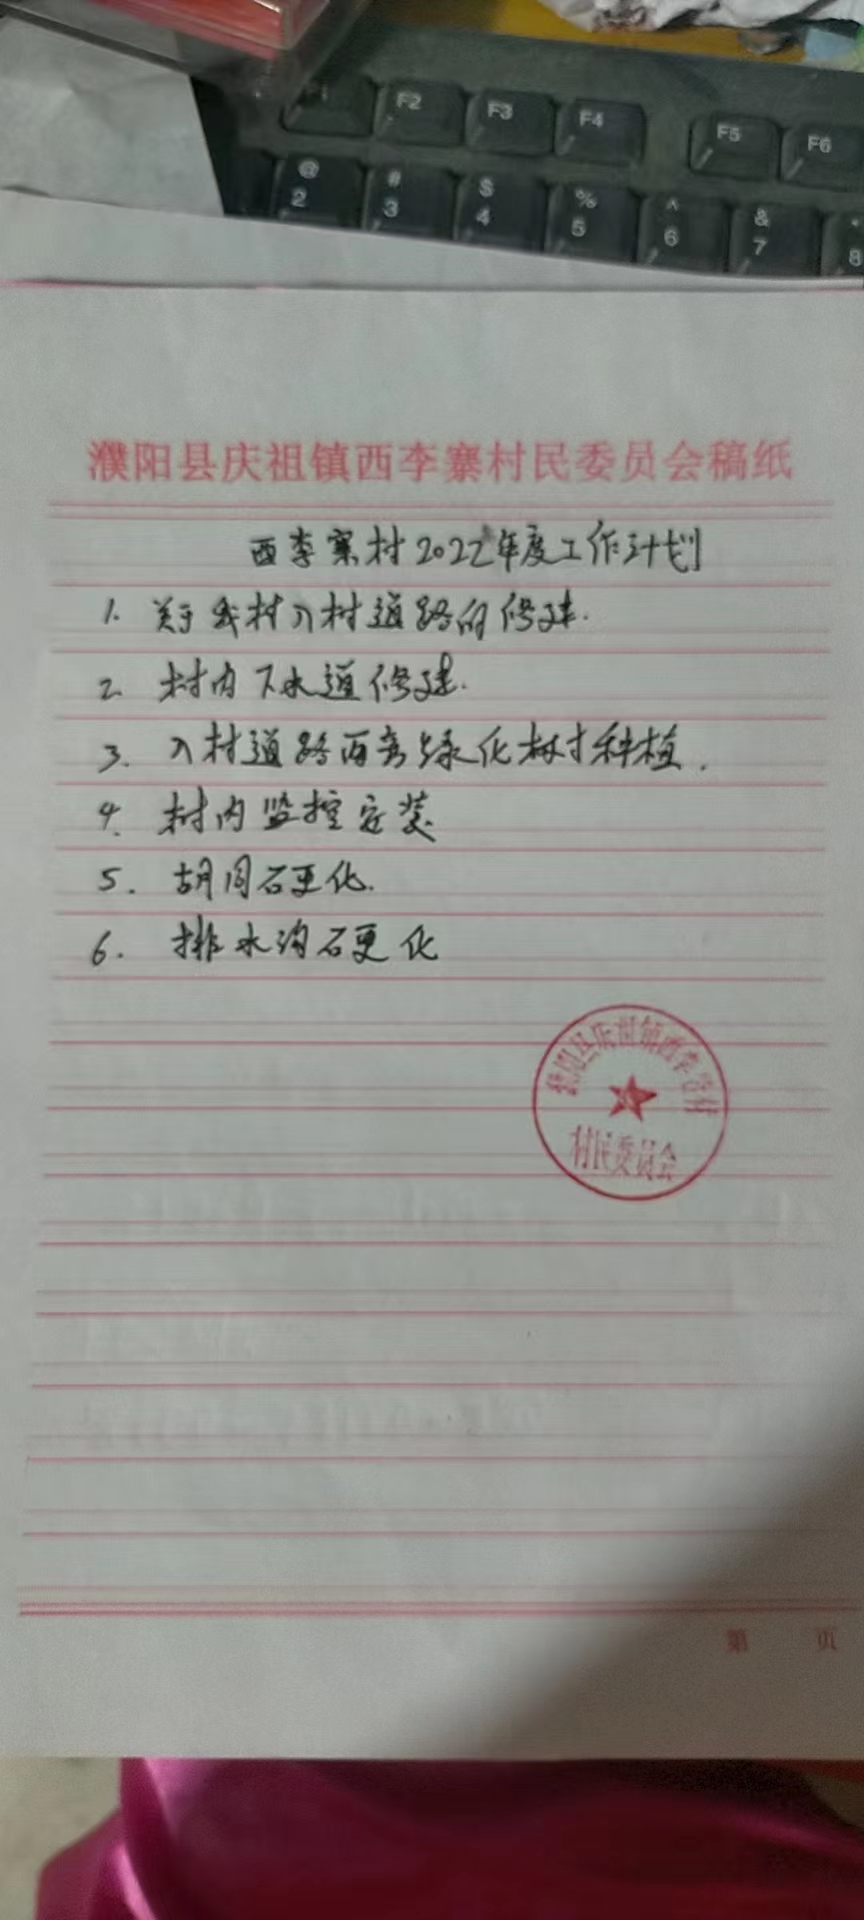 F2 F3 F4 F5 F6
@ # $ % ^ &
2 3 4 5 6 7 8
濮阳县庆祖镇西李寨村民委员会稿纸
西李寨村2022年度工作计划
1. 关于我村入村道路的修建.
2. 村内下水道修建.
3. 入村道路两旁绿化树种植.
4. 村内监控安装
5. 胡同硬化.
6. 排水沟硬化
濮阳县庆祖镇西李寨村
村民委员会
第 页